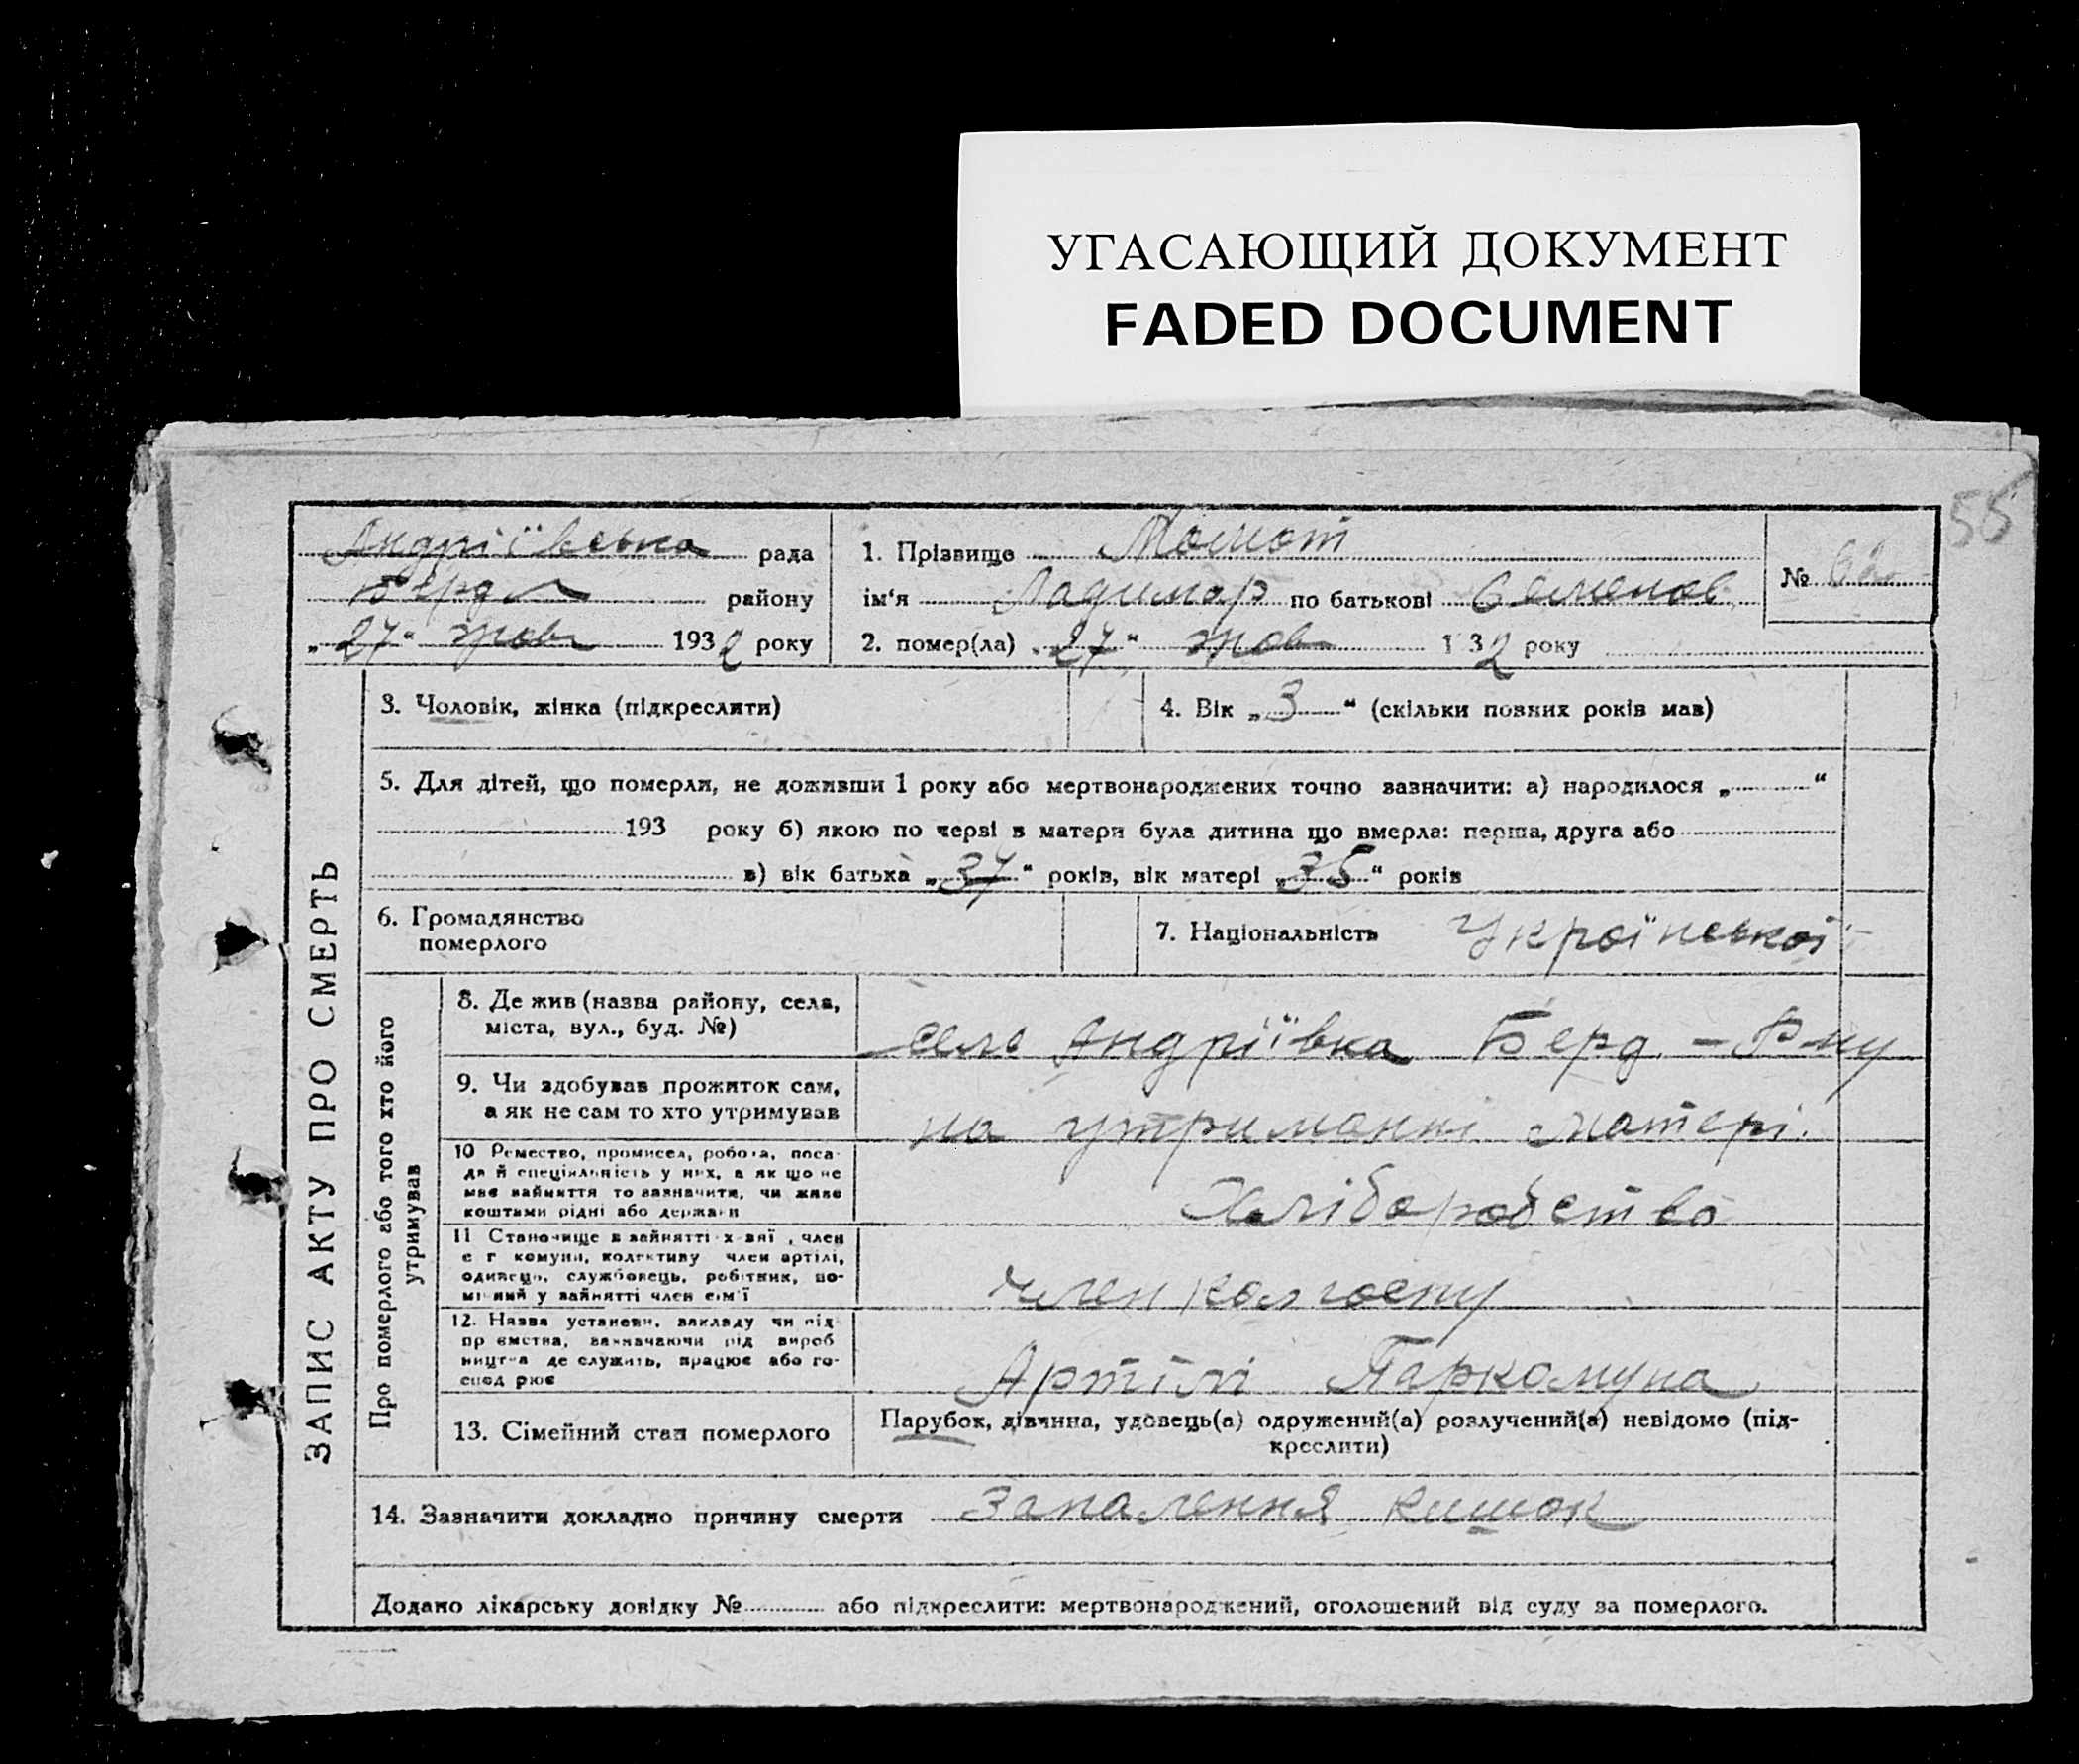 УГАСАЮЩИЙ ДОКУМЕНТ
FADED DOCUMENT
55
Андріївська рада
Берд району
„27“ жовт 1932 року
1. Прізвище Момот
ім‘я Ладимар по батькові Семенов
2. помер(ла) „27“ жовт 132 року
№ 62
ЗАПИС АКТУ ПРО СМЕРТЬ
3. Чоловік, жінка (підкреслити)
4. Вік „3“ (скільки повних років мав)
5. Для дітей, що померли, не доживши 1 року або мертвонароджених точно зазначити: а) народилося „ “
193 року б) якою по черзі в матери була дитина що вмерла: перша, друга або
в) вік батька „37“ років, вік матері „35“ років
6. Громадянство
померлого
7. Національність Української
Про померлого або того хто його
утримував
8. Де жив (назва району, села,
міста, вул., буд. №)
село Андріївка Берд. – Р-ну
9. Чи здобував прожиток сам,
а як не сам то хто утримував
на утриманні матері.
10 Ремество, промисел, робота, поса-
да й спеціяльність у них, а як що не
має зайняття то зазначити, чи живе
коштами рідні або держави
Хліборобство
11 Становище в зайнятті х-вні, член
с г комуни, колективу член артілі,
одивець, службовець, робітник, по-
мічний у зайнятті член сім'ї
член колгоспу
12. Назва установи, закладу чи під-
пр ємства, зазначаючи рід вироб
ництва де служить, працює або го-
спод рює
Артілі Паркомуна
13. Сімейний стан померлого
Парубок, дівчина, удовець(а) одружений(а) розлучений(а) невідомо (під-
креслити)
14. Зазначити докладно причину смерти Запалення кишок
Додано лікарську довідку № або підкреслити: мертвонароджений, оголошений від суду за померлого.